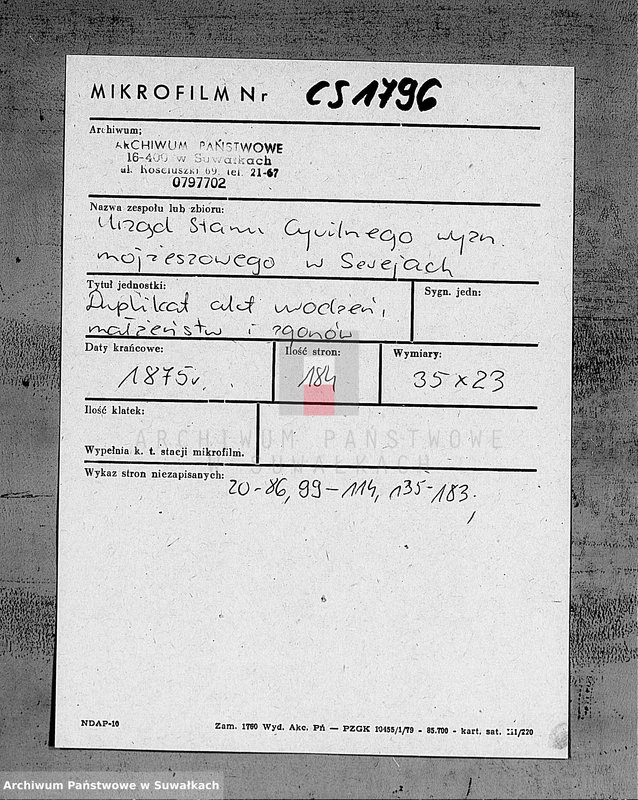 MIKROFILM Nr CS 1796
Archiwum:
ARCHIWUM PAŃSTWOWE
16-400 w Suwałkach
ul. Kościuszki 69, tel. 21-67
0797702
Nazwa zespołu lub zbioru:
Urząd Stanu Cywilnego wyzn.
mojżeszowego w Serejach
Tytuł jednostki:
Sygn. jedn:
Duplikat akt urodzeń,
małżeństw i zgonów
Daty krańcowe:
Ilość stron:
Wymiary:
1875r.
184
35 x 23
Ilość klatek:
ARCHIWUM PAŃSTWOWE
W SUWAŁKACH
Wypełnia k. t. stacji mikrofilm.
Wykaz stron niezapisanych:
20-86, 99-114, 135-183.
NDAP-10
Zam. 1760 Wyd. Akc. Pń — PZGK 10455/1/79 - 85.700 - kart. sat. III/220
Archiwum Państwowe w Suwałkach